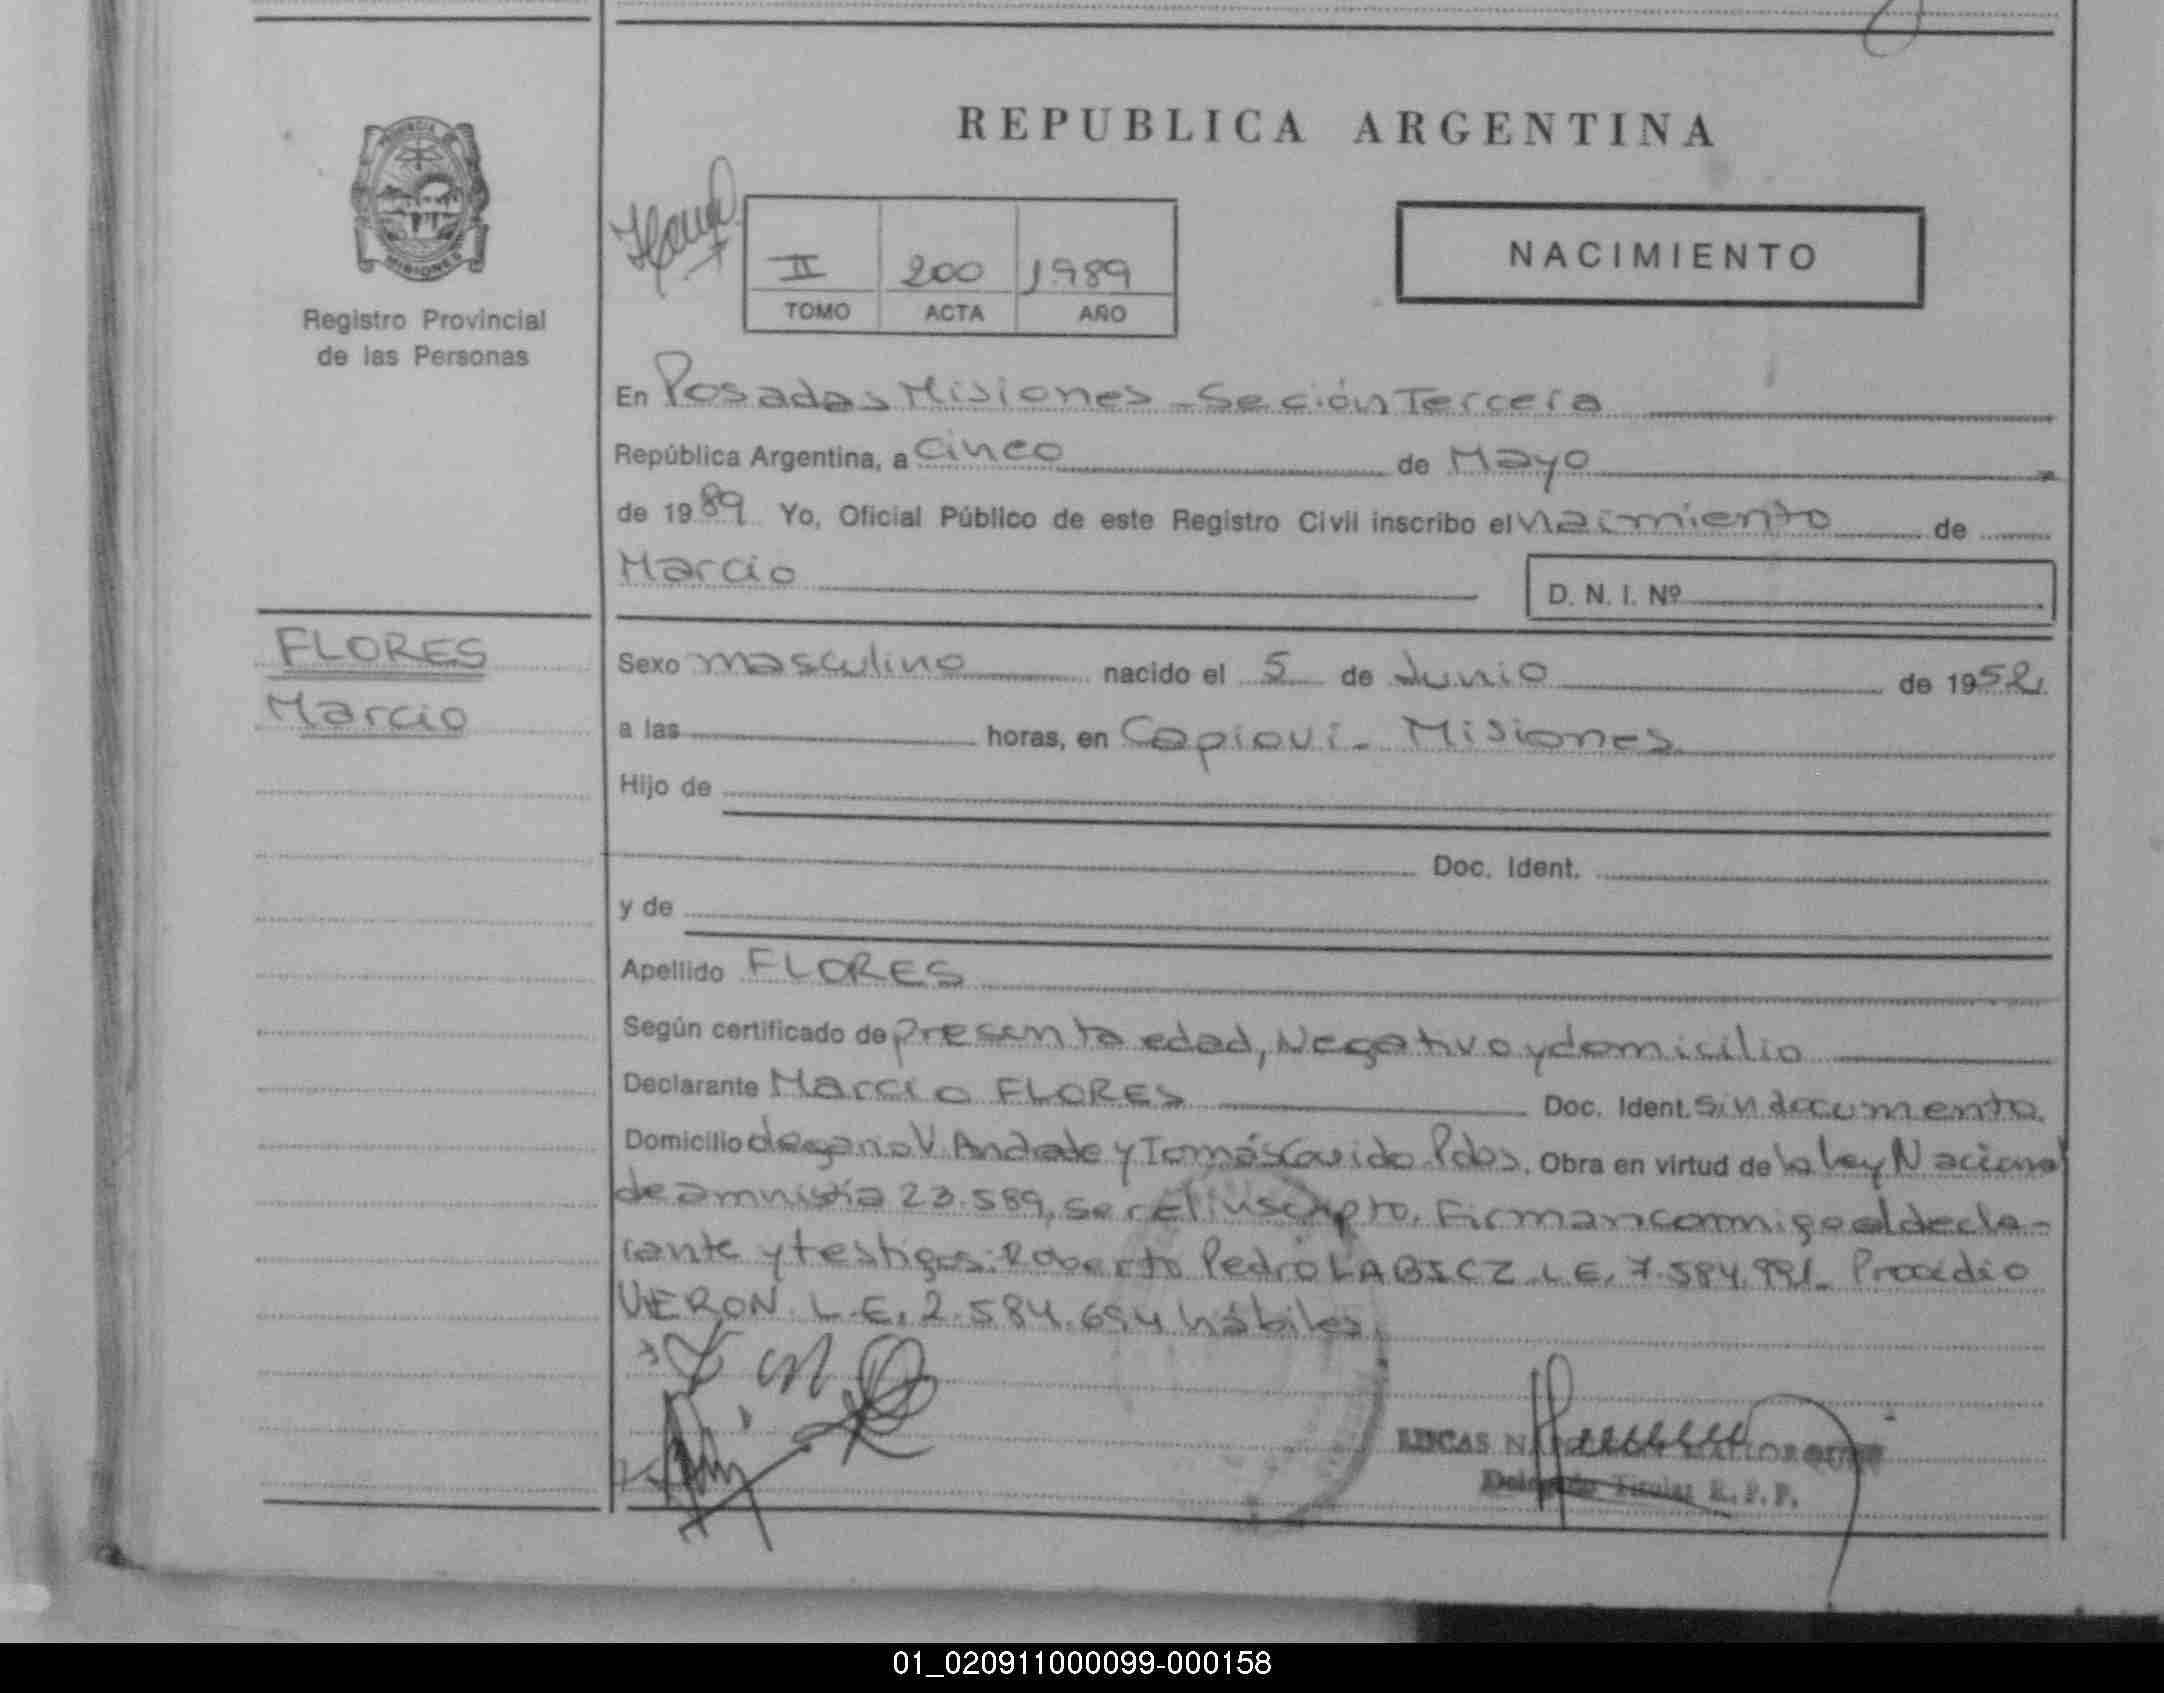 REPUBLICA ARGENTINA
PROVINCIA
MISIONES
Registro Provincial
de las Personas
II 200 1989
TOMO ACTA AÑO
NACIMIENTO
En Posadas Misiones - Seción Tercera
República Argentina, a cinco de Mayo
de 1989 Yo, Oficial Público de este Registro Civil inscribo el nacimiento de
Marcio
D. N. I. Nº
FLORES
Marcio
Sexo masculino nacido el 5 de Junio de 1952
a las horas, en Capiovi - Misiones
Hijo de
Doc. Ident.
y de
Apellido FLORES
Según certificado de presunta edad, Negativo y domicilio
Declarante Marcio FLORES Doc. Ident. Sin documento.
Domicilio V. Andrade y Tomás Guido Pdas. Obra en virtud de la ley Nacional
de amnistia 23.589, ser el inscripto. Firman conmigo el decla-
rante y testigos: Roberto Pedro LABICZ L.E. 7.584.991 -
VERON L.E. 2.584.694 hábiles.
LUCAS
Delegado Titular R.P.P.
01_020911000099-000158